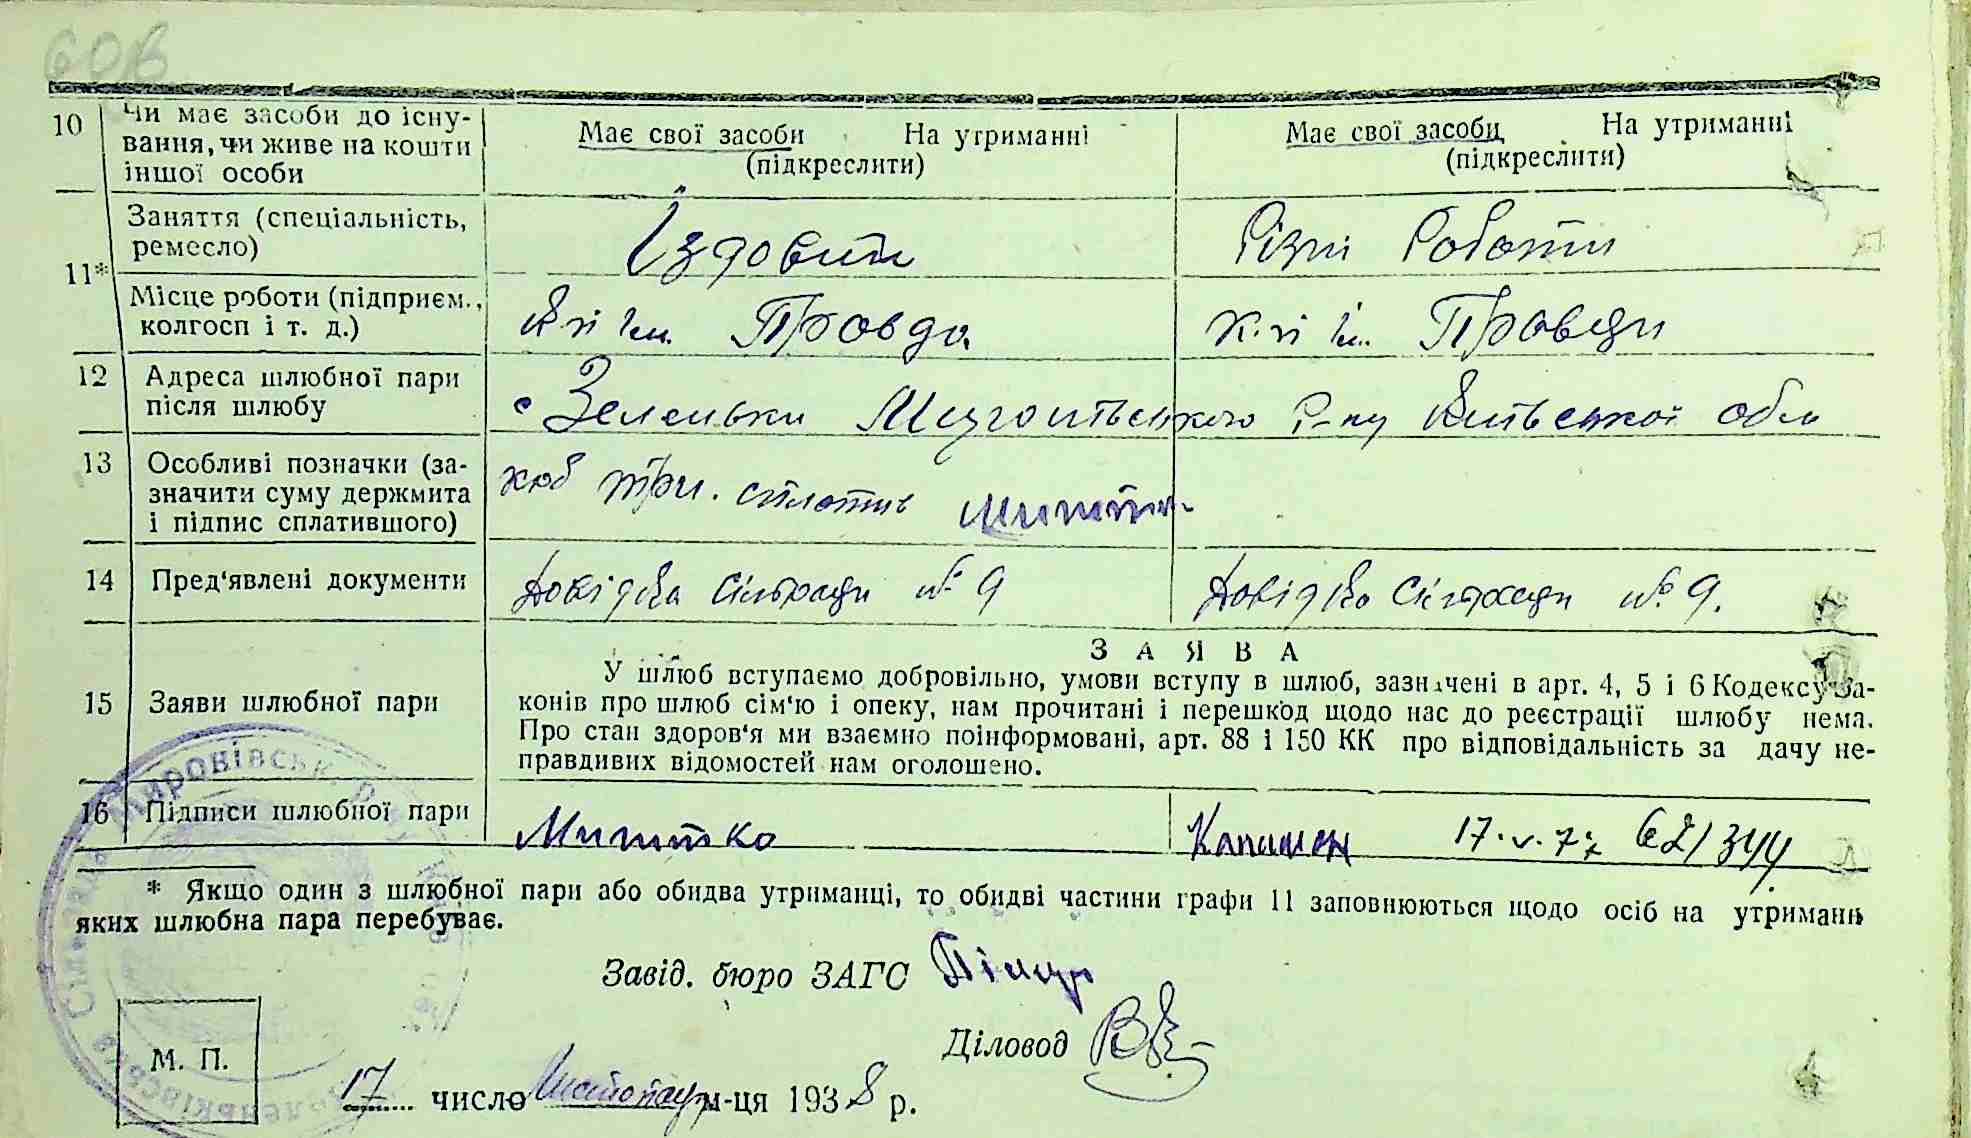 606
10 Чи має засоби до існу-
вання, чи живе на кошти
іншої особи
Має свої засоби На утриманні
(підкреслити)
Має свої засоби На утриманні
(підкреслити)
11*
Заняття (спеціальність,
ремесло)
Їздовий
Різні Роботи
Місце роботи (підприєм.,
колгосп і т. д.)
К-п ім. Правда
К-п ім. Правди
12 Адреса шлюбної пари
після шлюбу
с Зеленьки Київської обл
13 Особливі позначки (за-
значити суму держмита
і підпис сплатившого)
три. сплатив
14 Пред'явлені документи
Довідка Сільради № 9
Довідка Сільради № 9.
15 Заяви шлюбної пари
ЗАЯВА
У шлюб вступаємо добровільно, умови вступу в шлюб, зазначені в арт. 4, 5 і 6 Кодексу за-
конів про шлюб сім'ю і опеку, нам прочитані і перешкод щодо нас до реєстрації шлюбу нема.
Про стан здоров'я ми взаємно поінформовані, арт. 88 і 150 КК про відповідальність за дачу не-
правдивих відомостей нам оголошено.
16 Підписи шлюбної пари
17.V.77 621344
* Якщо один з шлюбної пари або обидва утриманці, то обидві частини графи 11 заповнюються щодо осіб на утриманні
яких шлюбна пара перебуває.
Завід. бюро ЗАГС
Діловод
М. П.
17 число Листопад м-ця 1938 р.